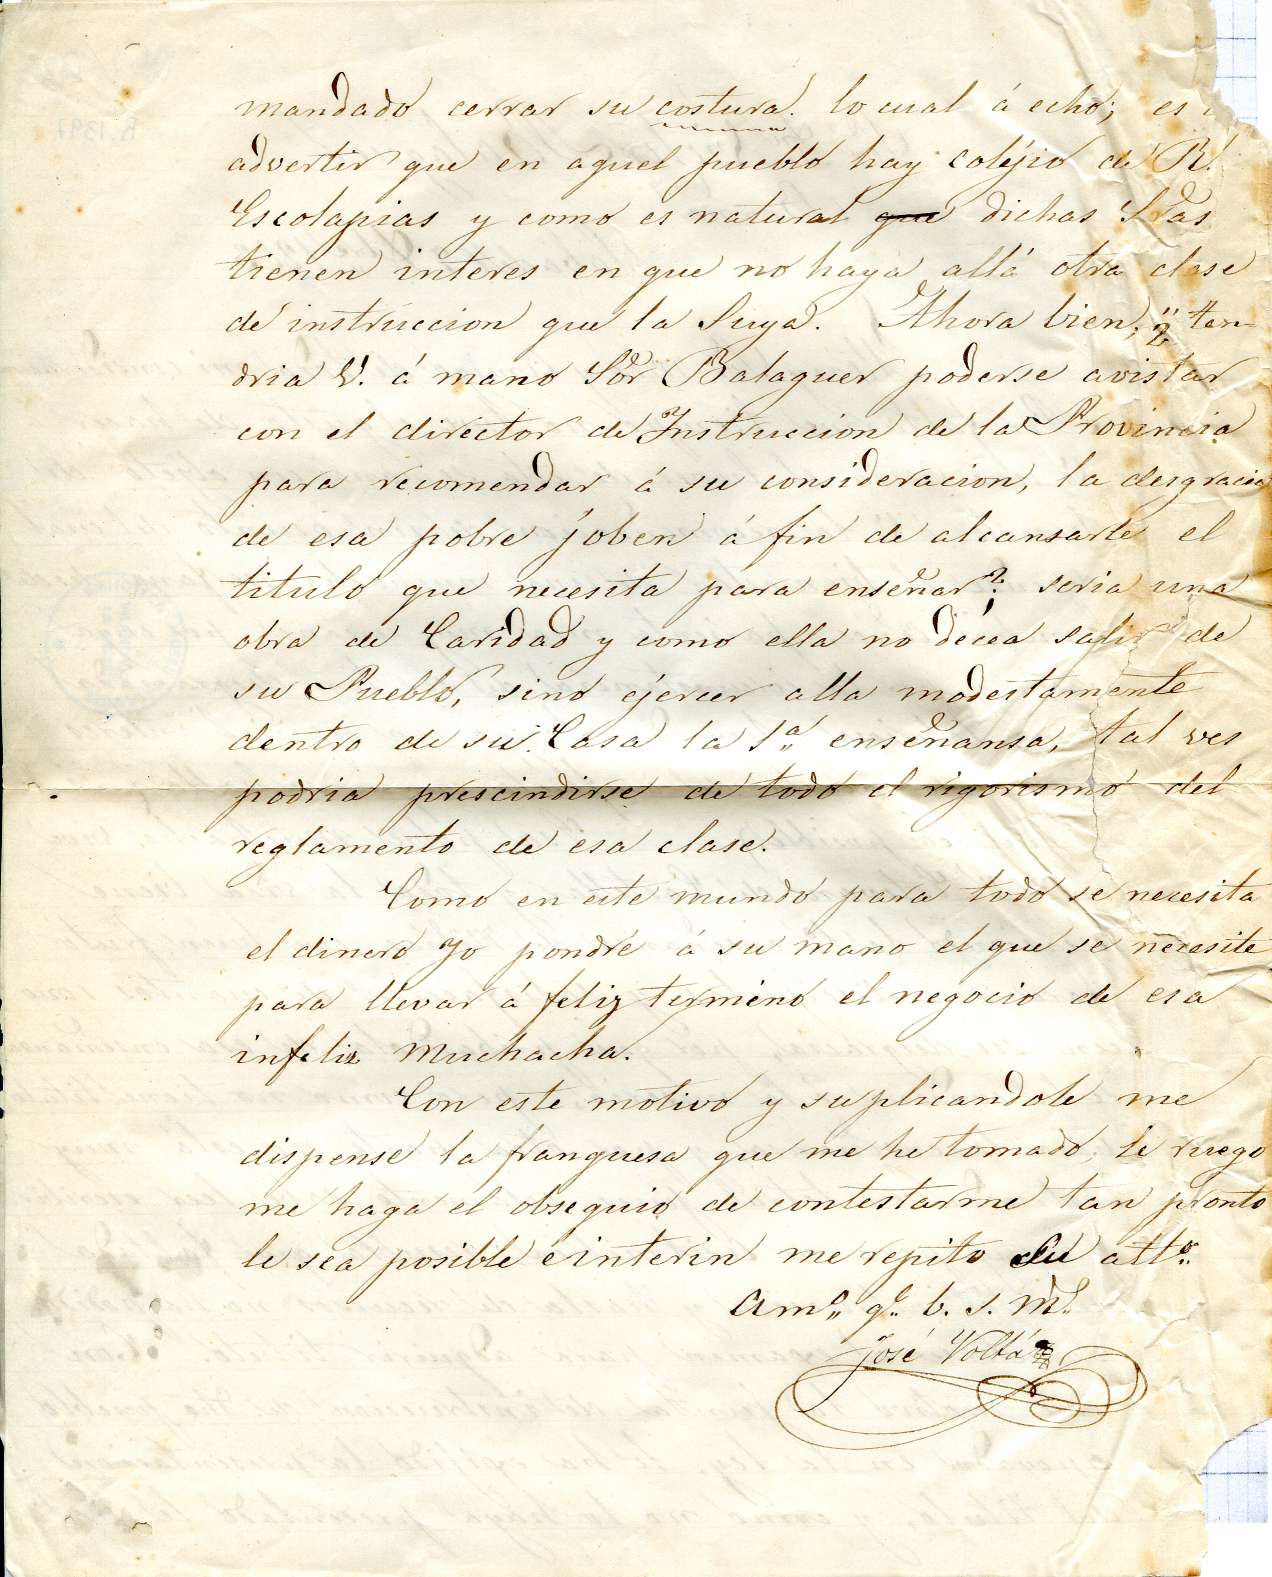 mandado cerrar su costura. lo cual á echo; es
advertir que en aquel pueblo hay coléjio de R.
Escolapias y como es natural que dichas Sras
tienen interes en que no haya allá otra clase
de instruccion que la Suya. Ahora bien, ¿ ten-
dria V. á mano Sor Balaguer poderse avistar
con el director de Instruccion de la Provincia
para recomendar á su consideracion, la desgracia
de esa pobre joben á fin de alcansarle el
titulo que necesita para enseñar?; seria una
obra de Caridad y como ella no decea salir de
su Pueblo, sinó ejercer alla modestamente
dentro de su Casa la 1ª enseñansa, tal ves
podria prescindirse de todo el rigorismo del
reglamento de esa clase.
Como en este mundo para todo se necesita
el dinero Yo pondré á su mano el que se necesite
para llevar á feliz termino el negocio de esa
infeliz Muchacha.
Con este motivo y suplicandole me
dispense la franquesa que me he tomado, le ruego
me haga el obsequio de contestarme tan pronto
le sea posible é interin me repito Su atto.
Amo. q. b. s. M.
José Voltá